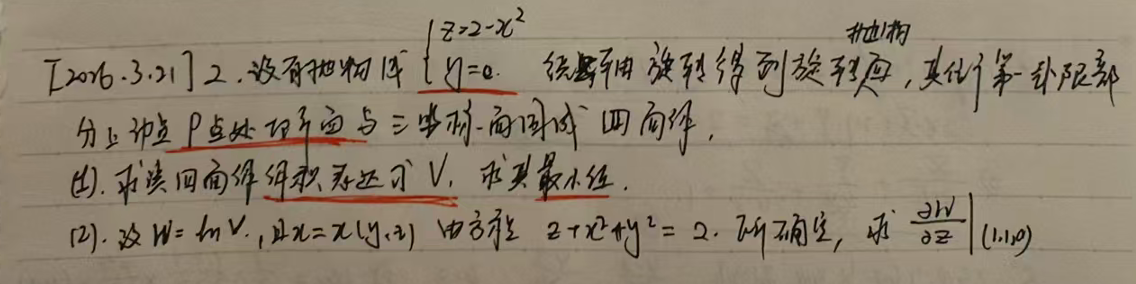 抛物
[2026.3.21] 2. 设有抛物线 { z=2-x² y=0. 绕z轴旋转得到旋转面, 其位于第一卦限部
分上动点 P点处切平面与三坐标面围成 四面体,
(1). 求该四面体体积表达式 V, 求其最小值.
(2). 设 W=lnV., 且x=x(y,z) 由方程 z+x²+y²=2. 所确定, 求 ∂W/∂z|(1,1,0)